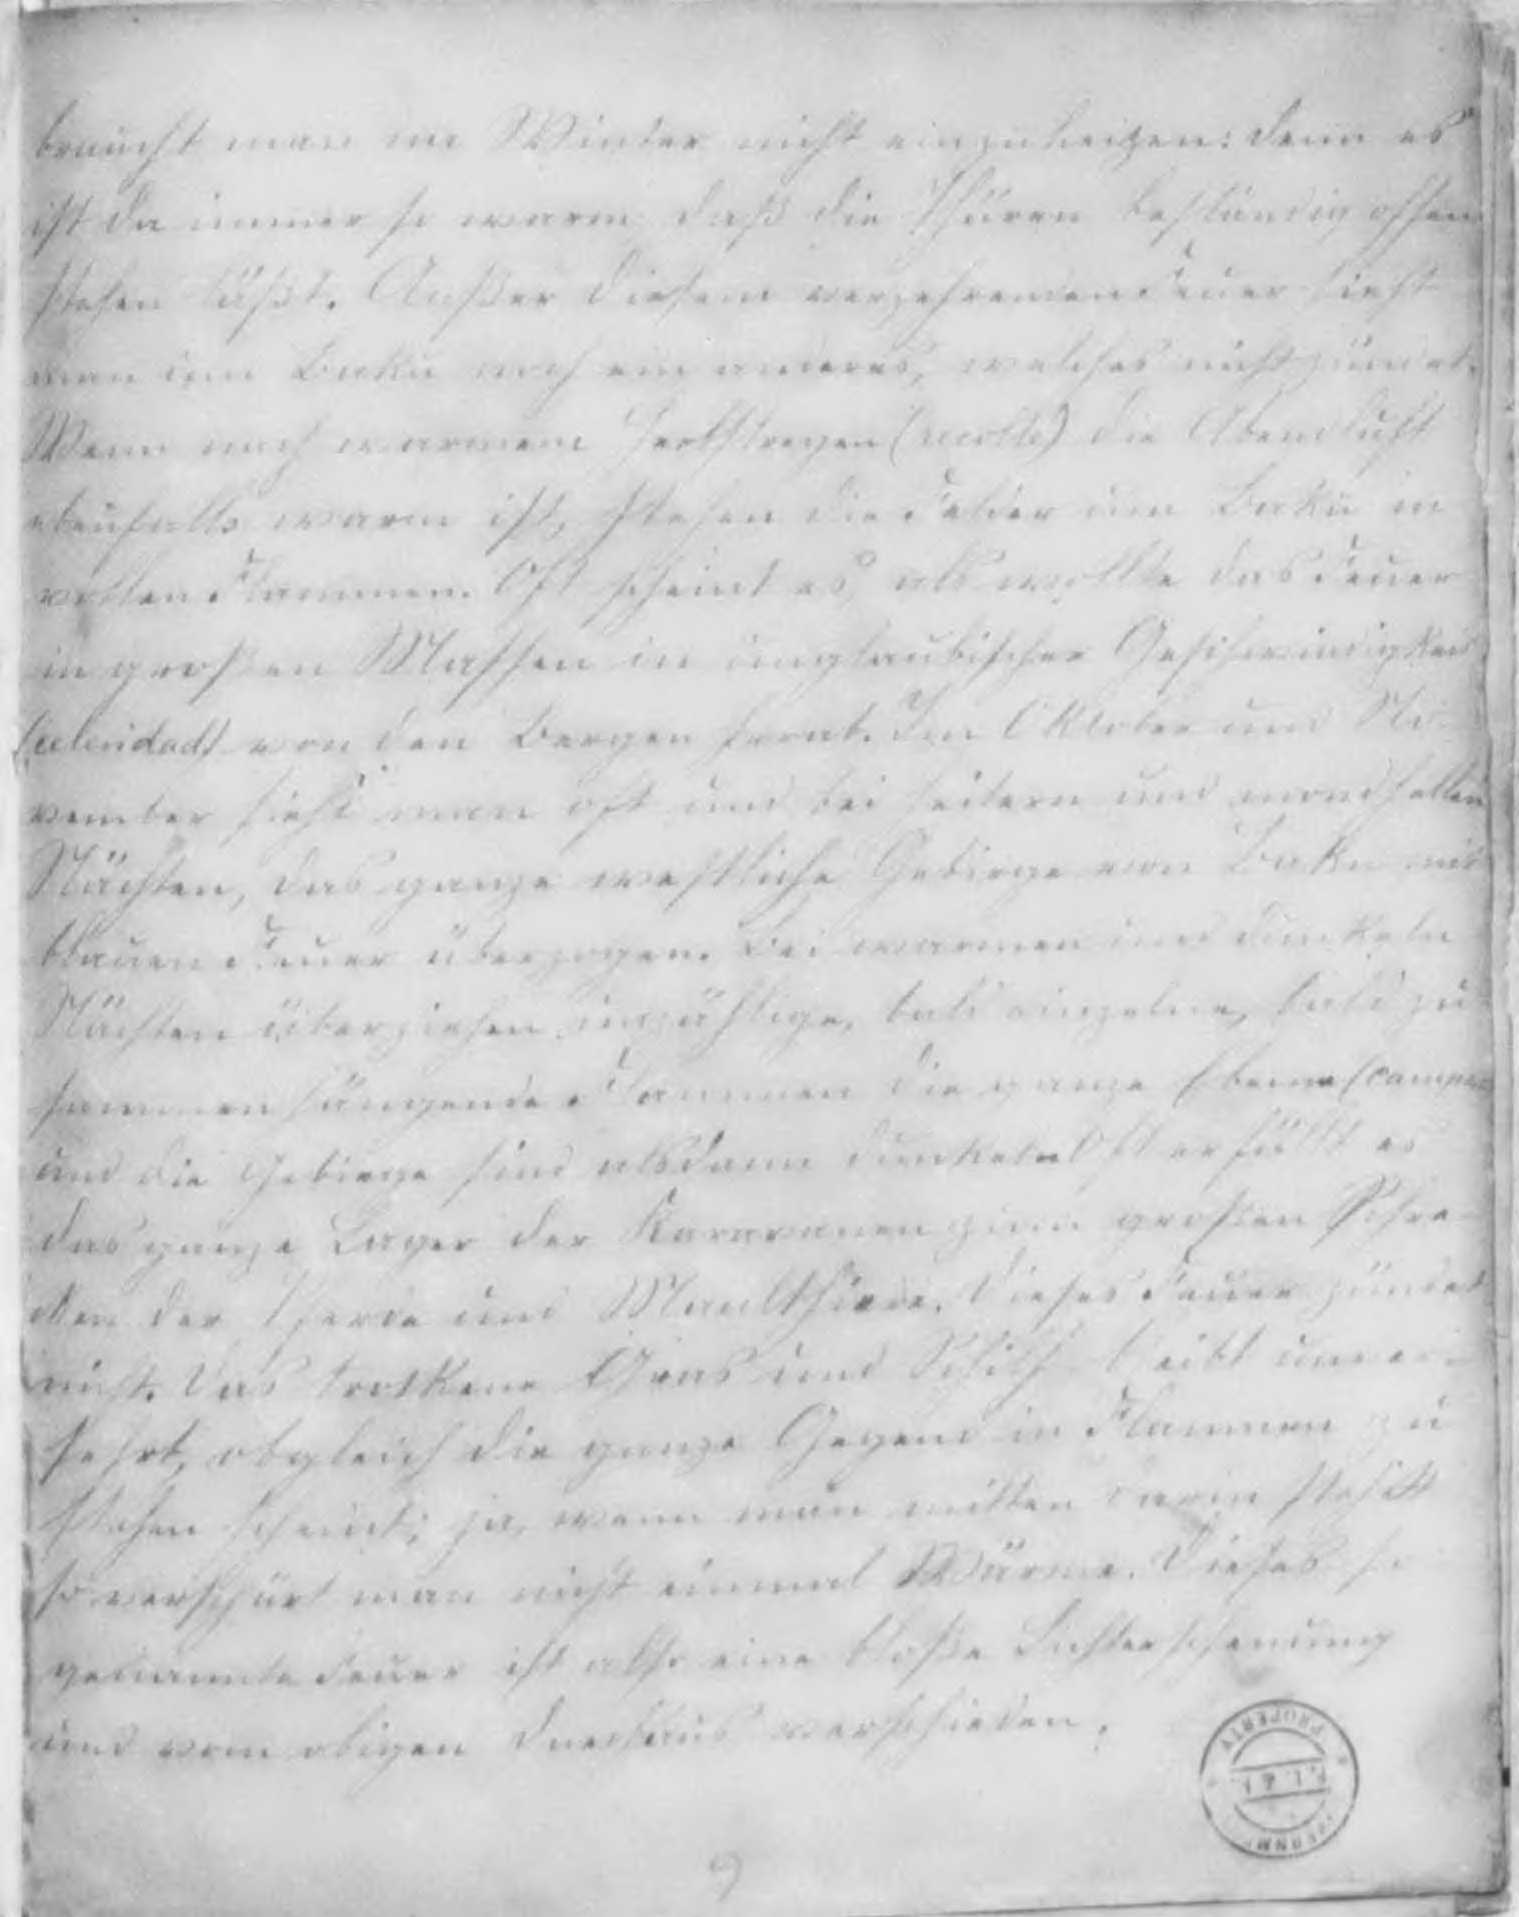 braucht man im Winter nicht einzuheitzen: denn es
ist da immer so warm, daß die Thüren beständig offen
stehen läßt. Außer diesem verzehrenden Feuer sieht
man um Baku noch ein anderes, welches nicht zündet.
Wenn nach warmem Herbstregen () die Abendluft
ebenfalls warm ist, stehen die Felder um Baku in
vollen Flammen. Oft scheint es, als wollte das Feuer
in großen Massen in unglaubischer Geschwindigkeit
(celeridad) von den Bergen herab. Im Oktober und No-
vember sieht man oft und bei heitern und mondhellen
Nächten, das ganze westliche Gebirge von Baku mit
blauen Feuer überzogen. Bei warmen und dunkeln
Nächten überziehen unzählige, bald einzelne, bald zu-
sammen hängende Flammen die ganze Ebene (campo)
und die Gebirge sind alsdann dunkel. Oft erfüllt es
das ganze Lager der Karavanen zum großen Schre-
cken der Pferde und Maulthiere. Dieses Feuer zündet
nicht. Das trockene Gras und Schilf bleibt unver-
sehrt, obgleich die ganze Gegend in Flammen zu
stehen scheint; ja, wenn man mitten darin steht
so verspürt man nicht einmal Wärme. Dieses so
genannte Feuer ist also eine bloße Lichterscheinung
und vom obigen durchaus verschieden.
PROPERTY
9